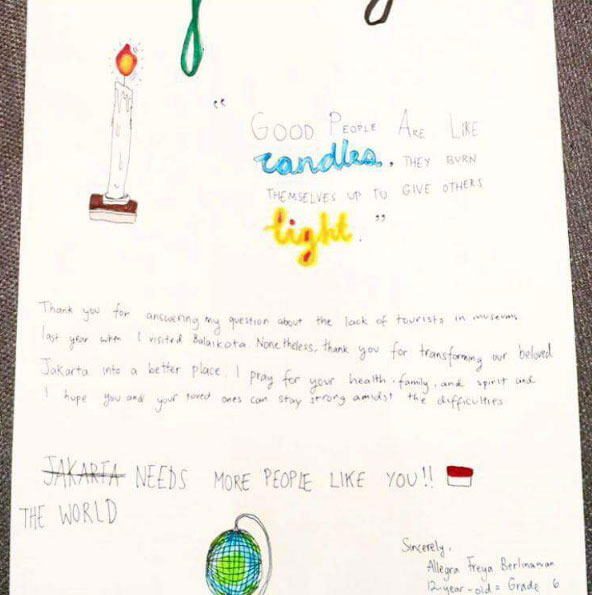 “ GOOD PEOPLE ARE LIKE
candles. THEY BURN
THEMSELVES UP TO GIVE OTHERS
light. ”
Thank you for answering my question about the lack of tourists in museums
last year when I visited Balaikota. Nonetheless, thank you for transforming our beloved
Jakarta into a better place. I pray for your health, family, and spirit and
I hope you and your loved ones can stay strong amidst the difficulties
JAKARTA NEEDS MORE PEOPLE LIKE YOU!!
THE WORLD
Sincerely,
Allegra Freya
12-year-old = Grade 6